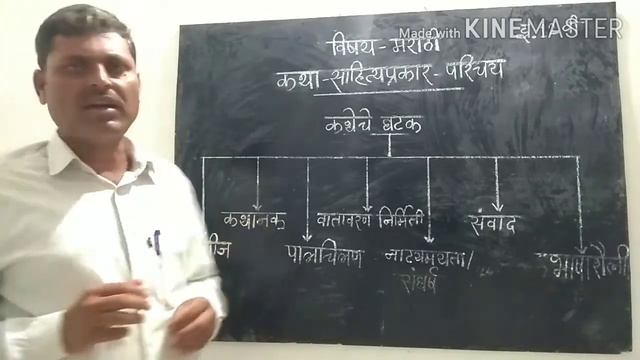 Made with KINEMASTER
विषय-मराठी
कथा-साहित्यप्रकार-परिचय
कथेचे घटक
कथानक वातावरण निर्मिती संवाद
बीज पात्रचित्रण नाट्यमयता/ भाषाशैली
संघर्ष